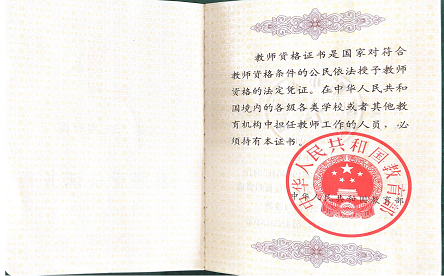 教师资格证书是国家对符合
教师资格条件的公民依法授予教师
资格的法定凭证。在中华人民共和
国境内的各级各类学校或者其他教
育机构中担任教师工作的人员，必
须持有本证书。
中华人民共和国教育部
中华人民共和国教育部